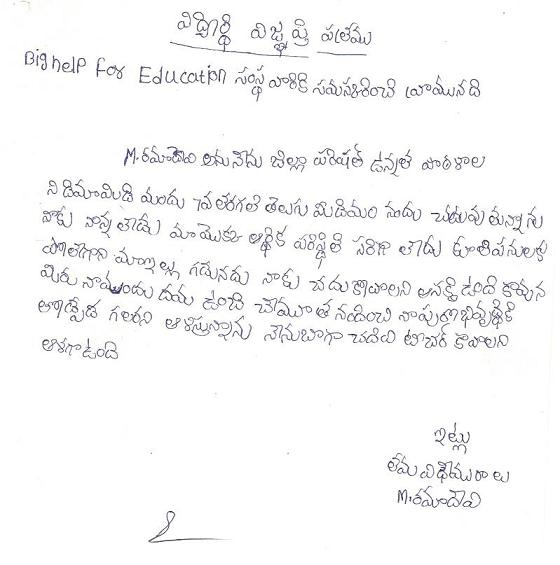 విద్యార్థి విజ్ఞప్తి పత్రము
Big help For Education సంస్థ వారికి సమస్కరించి వ్రాయునది
M. రమాదేవి అను నేను జిల్లా పరిషత్ ఉన్నత పాఠశాల
నిడిమామిడి నందు 7వ తరగతి తెలుగు మీడిమం నందు చదువుతున్నాను
నాకు నాన్న లేడు మా యొక్క ఆర్థిక పరిస్థితి సరిగా లేదు కూలిపనులకు
పోతేగాని మాఇల్లు గడవదు నాకు చదుకోవాలని ఆసక్తి ఉంది కావున
మీరు నాయందు దయ ఉంచి చేయూత నందించి నాపురాభివృద్ధికి
తోడ్పడ గలరని ఆశిస్తున్నాను నేనుబాగా చదివి టీచర్ కావాలని
ఆశగా ఉంది
ఇట్లు
తమ విధేయురాలు
M. రమాదేవి